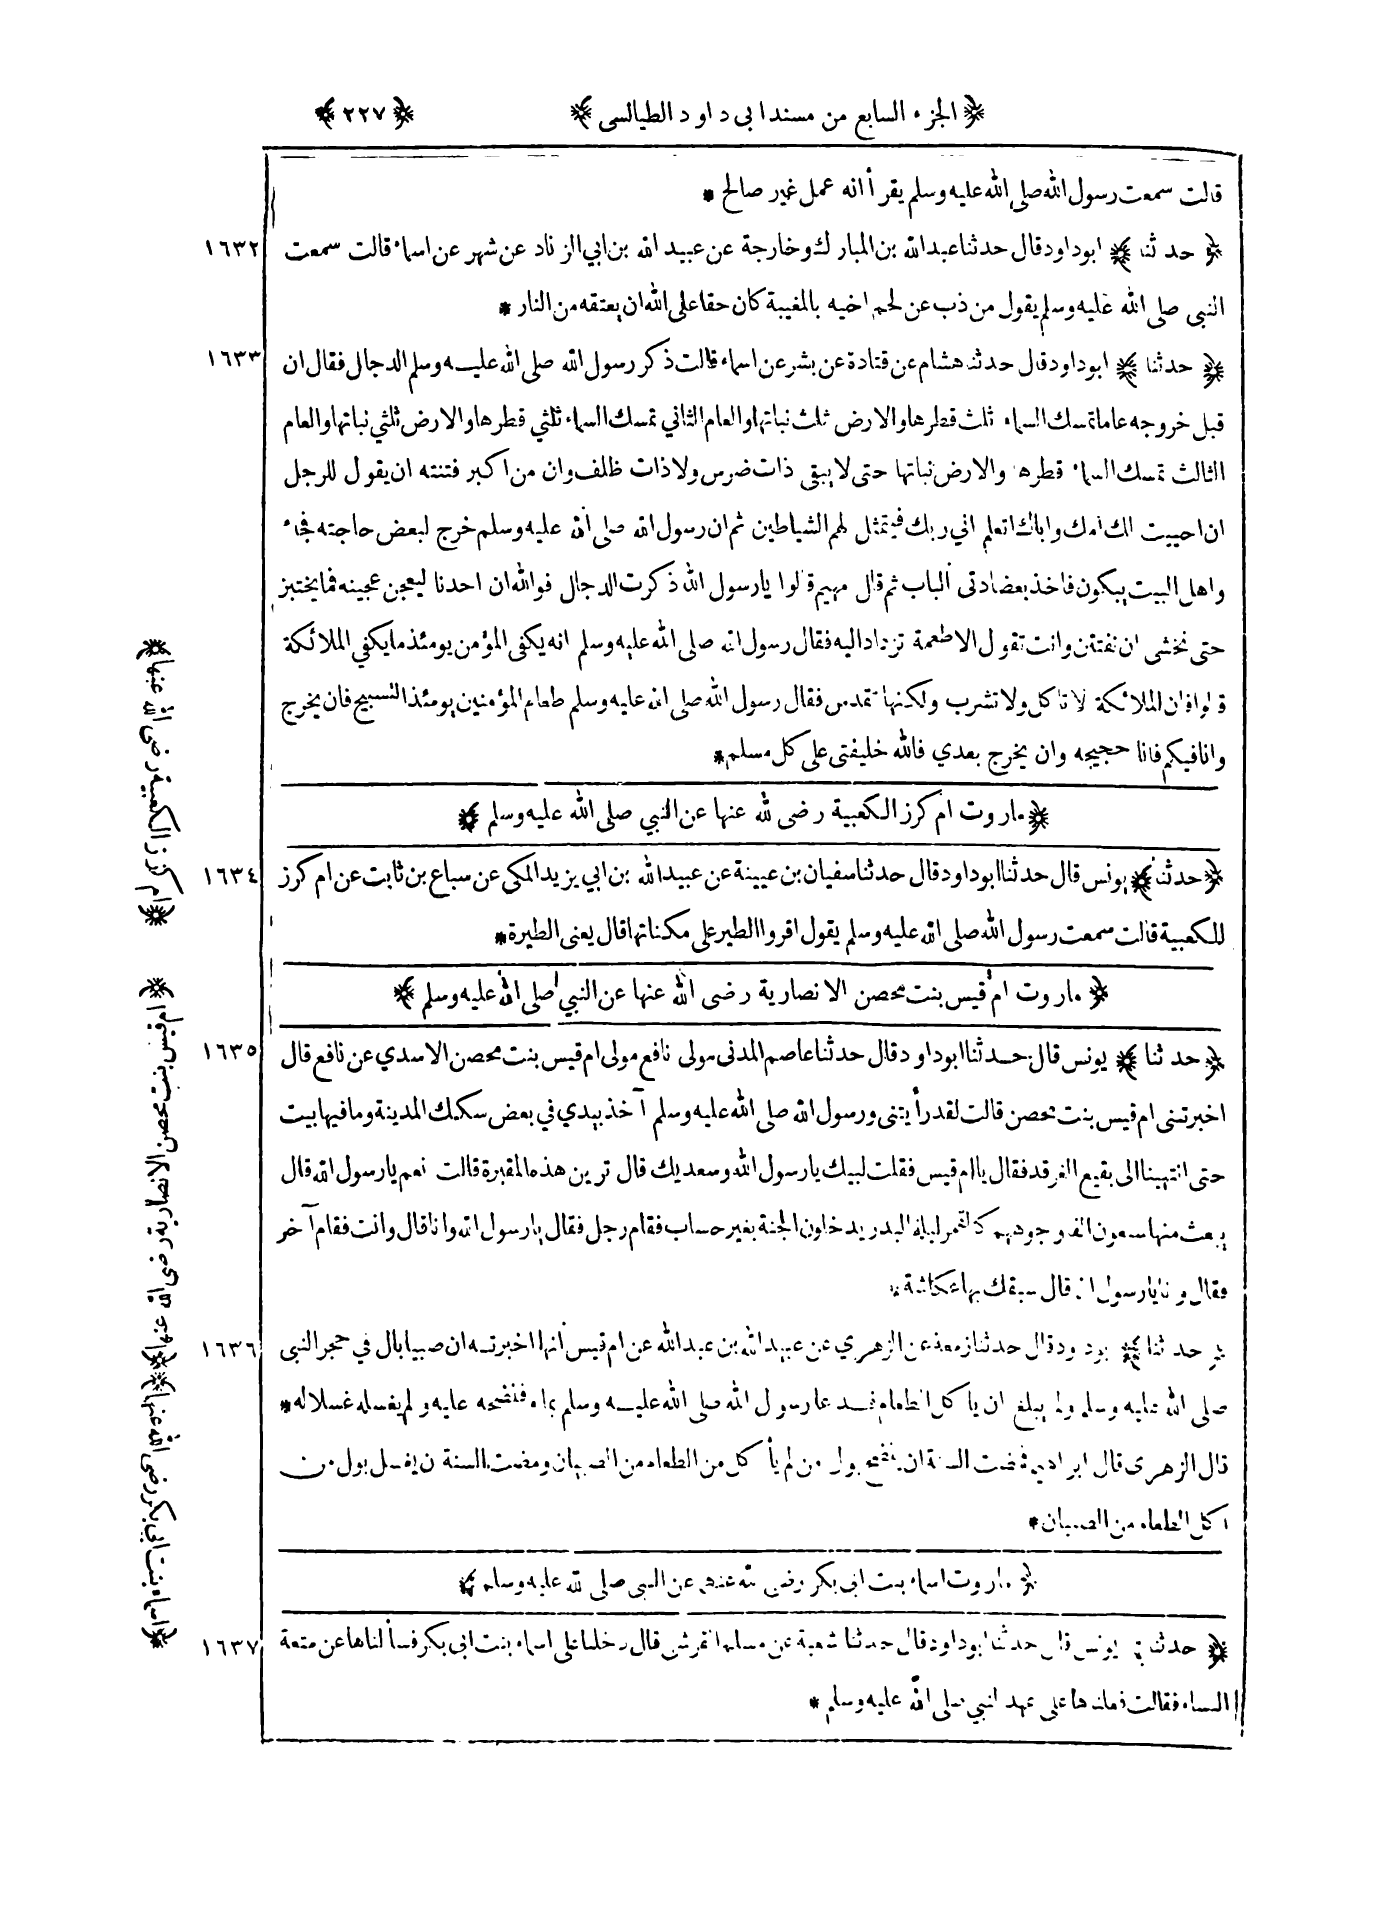 ﴿الجزء السابع من مسند ابى داود الطيالسى﴾ ﴿٢٢٧﴾
قالت سمعت رسول الله صلى الله عليه وسلم يقرأ انه عمل غير صالح *
١٦٣٢ ﴿حدثنا﴾ ابوداود قال حدثنا عبد الله بن المبارك وخارجة عن عبيد الله بن ابي الزناد عن شهر عن اسماء قالت سمعت
النبى صلى الله عليه وسلم يقول من ذب عن لحم اخيه بالمغيبة كان حقا على الله ان يعتقه من النار *
١٦٣٣ ﴿حدثنا﴾ ابوداود قال حدثنا هشام عن قتادة عن بشر عن اسماء قالت ذكر رسول الله صلى الله عليه وسلم الدجال فقال ان
قبل خروجه عاما تمسك السماء ثلث قطرها والارض ثلث نباتها والعام الثاني تمسك السماء ثلثي قطرها والارض ثلثي نباتها والعام
الثالث تمسك السماء قطرها والارض نباتها حتى لا يبقى ذات ضرس ولا ذات ظلف وان من اكبر فتنته ان يقول للرجل
ان احييت لك امك واباك اتعلم اني ربك فيتمثل لهم الشياطين ثم ان رسول الله صلى الله عليه وسلم خرج لبعض حاجته فجاء
واهل البيت يبكون فاخذ بعضادتى الباب ثم قال مهيم قالوا يا رسول الله ذكرت الدجال فوالله ان احدنا ليعجن عجينه فما يختبز
حتى نخشى ان نفتتن وانت تقول الاطعمة تزداد اليه فقال رسول الله صلى الله عليه وسلم انه يكفى المؤمن يومئذ ما يكفي الملائكة
قالوا فان الملائكة لا تاكل ولا تشرب ولكنها تقدس فقال رسول الله صلى الله عليه وسلم طعام المؤمنين يومئذ التسبيح فان يخرج
وانا فيكم فانا حجيجه وان يخرج بعدي فالله خليفتى على كل مسلم *
﴿ما روت ام كرز الكعبية رضى الله عنها عن النبي صلى الله عليه وسلم﴾
١٦٣٤ ﴿حدثنا﴾ يونس قال حدثنا ابوداود قال حدثنا سفيان بن عيينة عن عبيد الله بن ابي يزيد المكى عن سباع بن ثابت عن ام كرز
للكعبية قالت سمعت رسول الله صلى الله عليه وسلم يقول اقروا الطير على مكناتها قال يعنى الطيرة *
﴿ما روت ام قيس بنت محصن الانصارية رضى الله عنها عن النبي صلى الله عليه وسلم﴾
١٦٣٥ ﴿حدثنا﴾ يونس قال حدثنا ابوداود قال حدثنا عاصم المدنى مولى نافع مولى ام قيس بنت محصن الاسدي عن نافع قال
اخبرتنى ام قيس بنت محصن قالت لقد رأيتنى ورسول الله صلى الله عليه وسلم آخذ بيدي في بعض سكك المدينة وما فيها بيت
حتى انتهينا الى بقيع الغرقد فقال يا ام قيس فقلت لبيك يا رسول الله وسعديك قال ترين هذه المقبرة قالت نعم يا رسول الله قال
يبعث منها سبعون الف وجوههم كالقمر ليلة البدر يدخلون الجنة بغير حساب فقام رجل فقال يا رسول الله وانا قال وانت فقام آخر
فقال وانا يا رسول الله قال سبقك بها عكاشة *
١٦٣٦ ﴿حدثنا﴾ ابوداود قال حدثنا زمعة عن الزهري عن عبيد الله بن عبد الله عن ام قيس انها اخبرته ان صبيا بال في حجر النبى
صلى الله عليه وسلم ولم يبلغ ان ياكل الطعام فدعا رسول الله صلى الله عليه وسلم بماء فنضحه عليه ولم يغسله غسلا له *
قال الزهرى قال ابراهيم فمضت السنة ان ينضح بول من لم يأكل من الطعام من الصبيان ومضت السنة ان يغسل بول من
اكل الطعام من الصبيان *
﴿ما روت اسماء بنت ابى بكر رضى الله عنهم عن النبى صلى الله عليه وسلم﴾
١٦٣٧ ﴿حدثنا﴾ يونس قال حدثنا ابوداود قال حدثنا شعبة عن مسلم القرشى قال دخلنا على اسماء بنت ابى بكر فسألناها عن متعة
النساء فقالت فعلناها على عهد النبي صلى الله عليه وسلم *
﴿ام كرز الكعبية رضى الله عنها﴾
﴿ام قيس بنت محصن الانصارية رضى الله عنها﴾
﴿اسماء بنت ابي بكر رضى الله عنها﴾